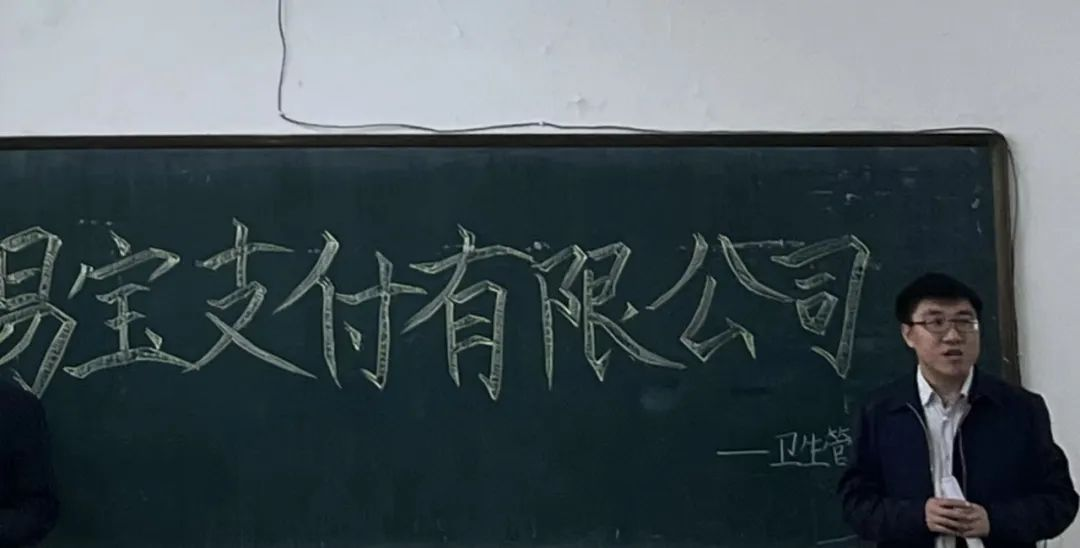 易宝支付有限公司
——卫生管